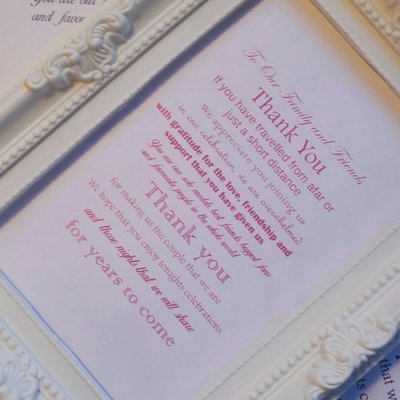 You are our
and favor
To Our Family and Friends
Thank You
If you have travelled from afar or
just a short distance
We appreciate you joining us
in our celebration, we are overwhelmed
with gratitude for the love, friendship and
support that you have given us
You are our sole mates, best friends biggest fans
and favourite people in the whole world
Thank you
for making us the couple that we are
We hope that you enjoy tonights celebrations
and those nights that we will share
for years to come
that w